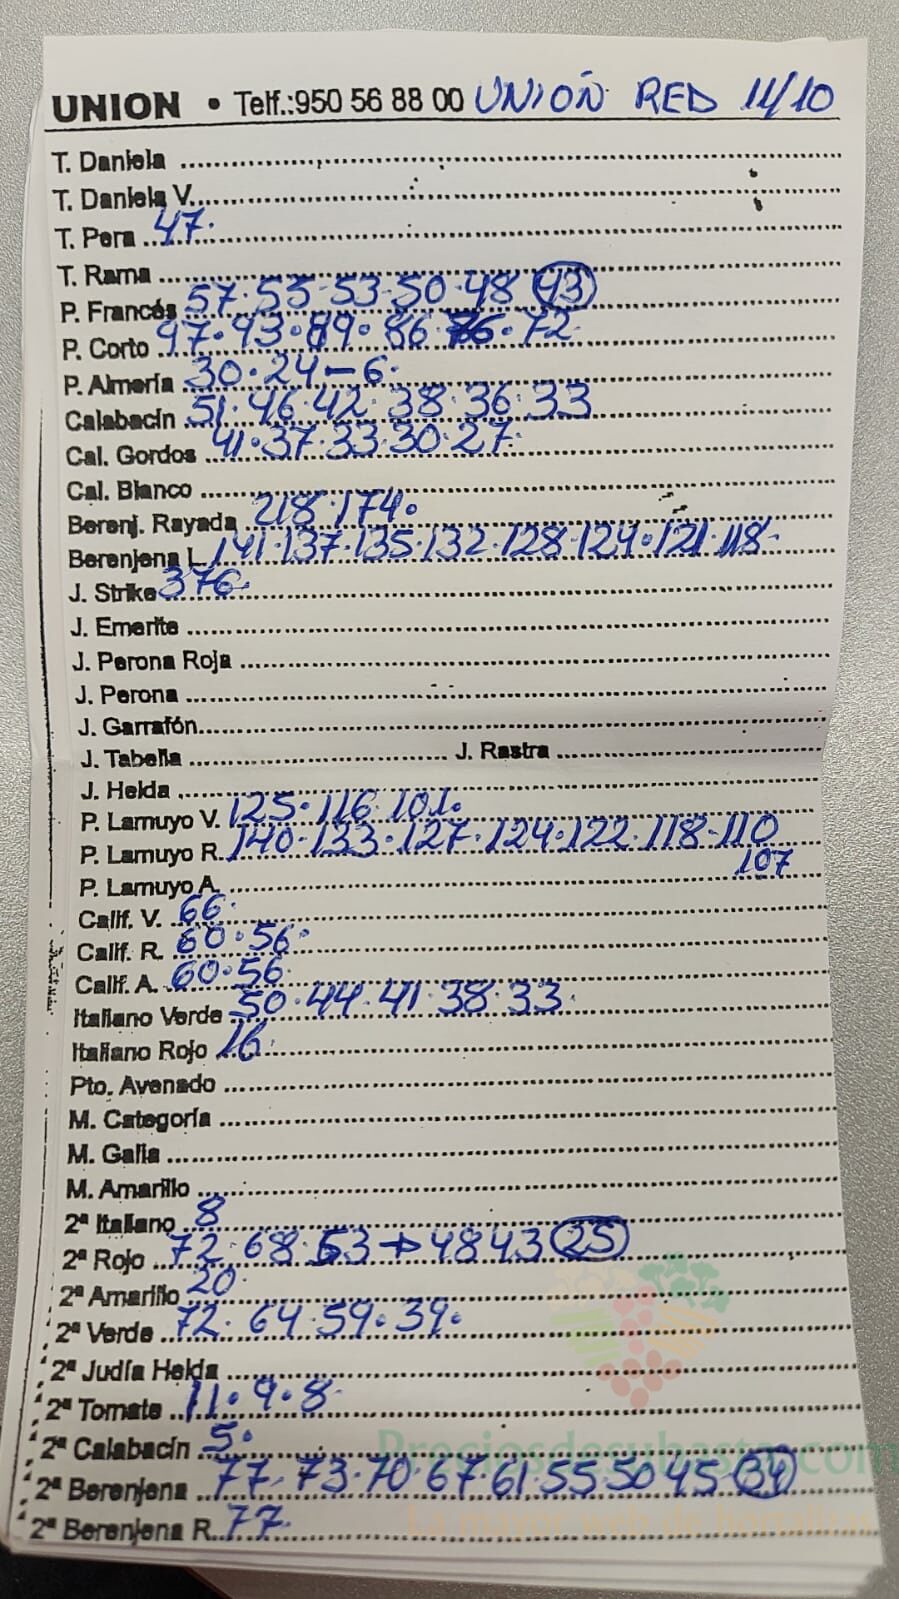 UNION • Telf.:950 56 88 00 UNIÓN RED 11/10
T. Daniela
T. Daniela V.
T. Pera 47.
T. Rama
P. Francés 57.55.53.50.48 (43)
P. Corto 97.93.89.86.76.72
P. Almería 30.24-6.
Calabacín 51.46.42.38.36.33
Cal. Gordos 41.37.33.30.27.
Cal. Blanco
Berenj. Rayada 218.174.
Berenjena L. 141.137.135.132.128.124.121.118.
J. Strike 376.
J. Emerite
J. Perona Roja
J. Perona
J. Garrafón
J. Tabella J. Rastra
J. Helda
P. Lamuyo V. 125.116.101.
P. Lamuyo R. 140.133.127.124.122.118.110
107
P. Lamuyo A.
Calif. V. 66.
Calif. R. 60.56.
Calif. A. 60.56.
Italiano Verde 50.44.41.38.33.
Italiano Rojo 16.
Pto. Avenado
M. Categoría
M. Galia
M. Amarillo
2ª Italiano 8
2ª Rojo 72.68.53→48 43 (25)
2ª Amarillo 20.
2ª Verde 72.64.59.39.
2ª Judía Helda
2ª Tomate 11.9.8.
2ª Calabacín 5.
Preciosdesubasta.com
2ª Berenjena 77.73.70.67.61.55.50 45 (34)
La mayor web de hortalizas
2ª Berenjena R. 77.